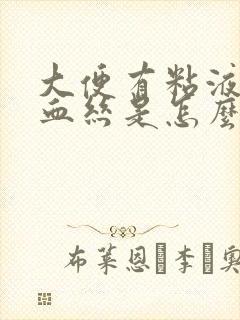 大便有粘液
血丝是怎麽
布莱恩·李·奥